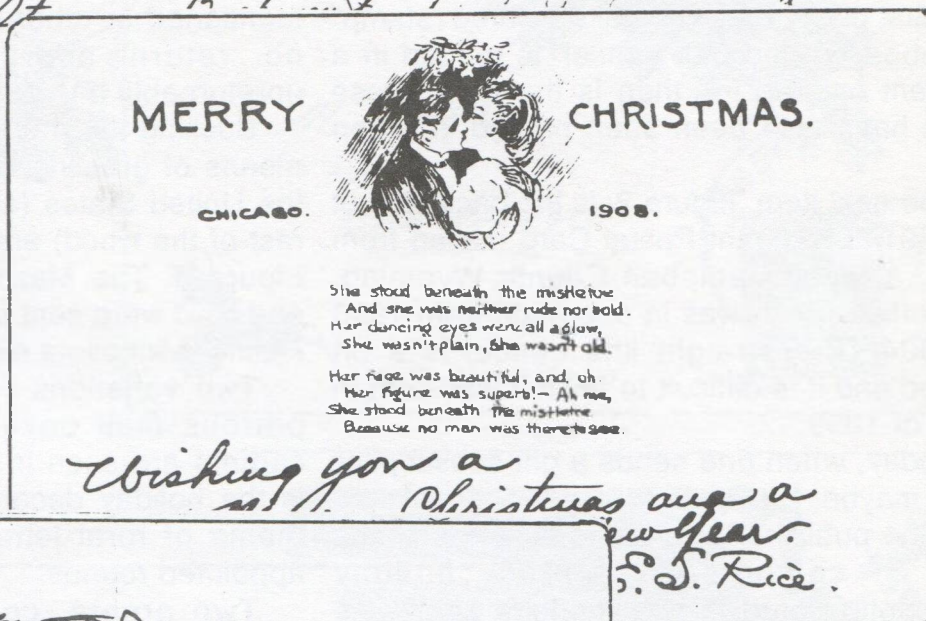 MERRY CHRISTMAS.
CHICAGO. 1908.
She stood beneath the mistletoe
And she was neither rude nor bold.
Her dancing eyes were all aglow,
She wasn't plain, She wasn't old.
Her face was beautiful, and oh
Her figure was superb! - Ah me,
She stood beneath the mistletoe
Because no man was there to see.
Wishing you a
Christmas and a
ew Year.
S. Rice.